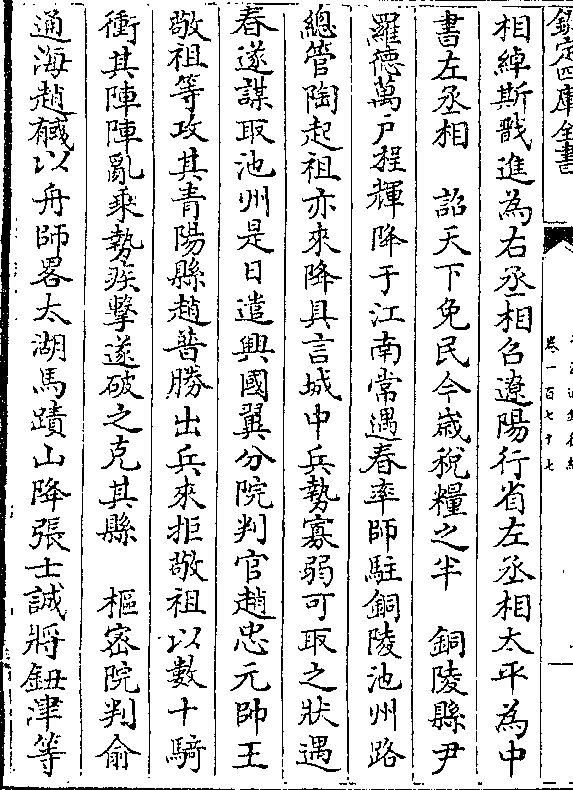 欽定四庫全書
卷一百七十七
相綽斯戩進為右丞相召遼陽行省左丞相太平為中
書左丞相　詔天下免民今歲稅糧之半　銅陵縣尹
羅德萬户程輝降于江南常遇春率師駐銅陵池州路
總管陶起祖亦來降具言城中兵勢寡弱可取之狀遇
春遂謀取池州是日遣興國翼分院判官趙忠元帥王
敬祖等攻其青陽縣趙普勝出兵來拒敬祖以數十騎
衝其陣陣亂乘勢疾擊遂破之克其縣　樞密院判俞
通海趙馘以舟師畧太湖馬蹟山降張士誠將鈕津等